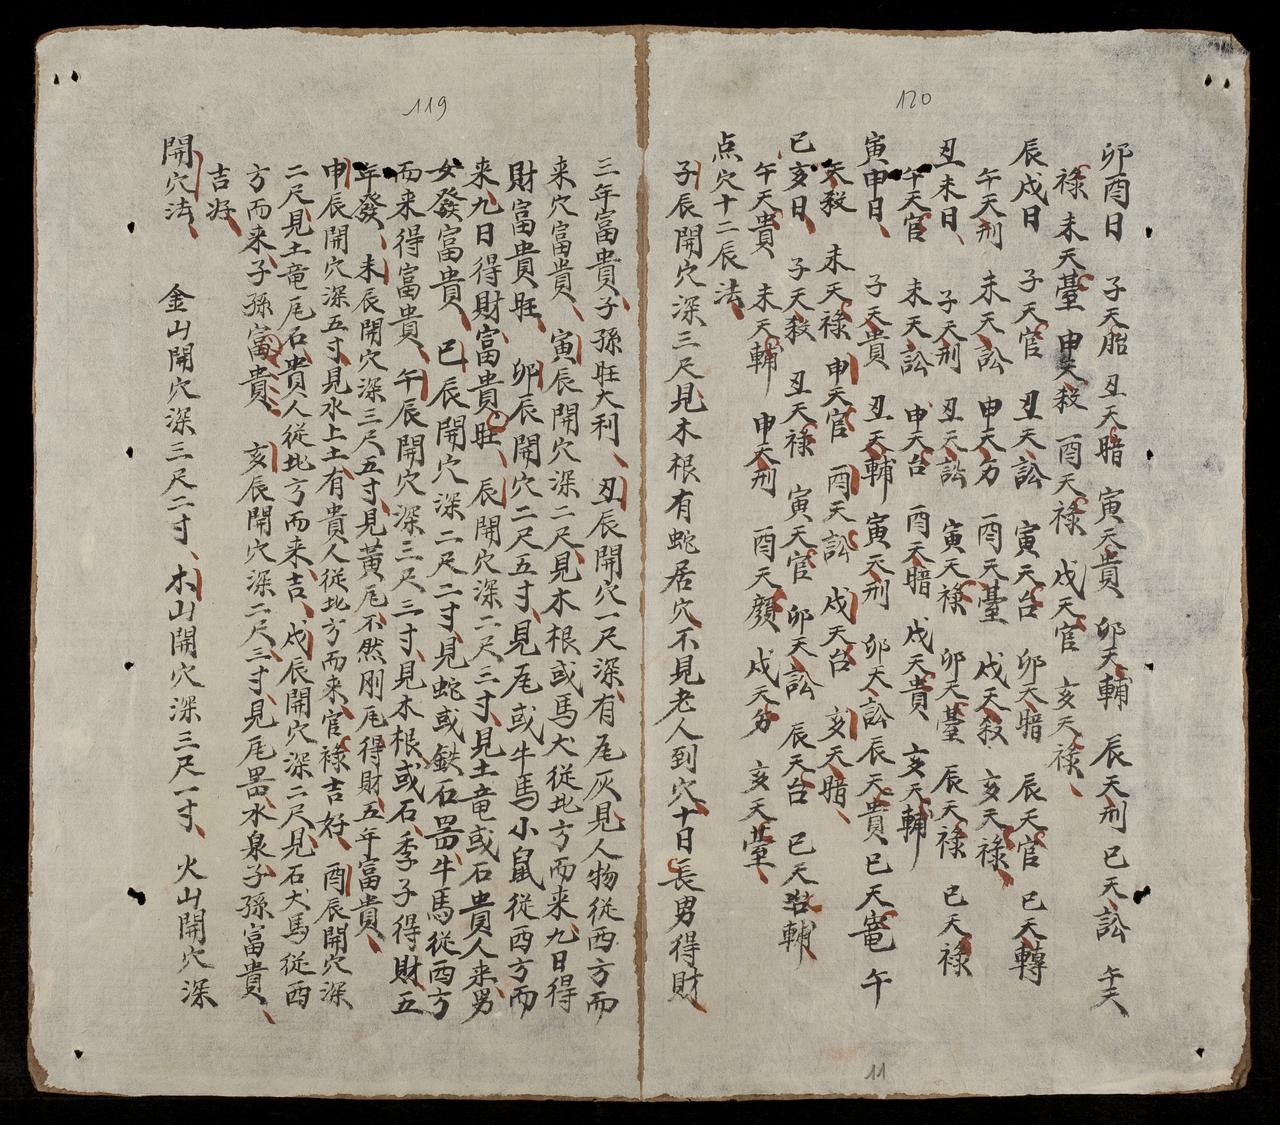 120
卯酉日 子天胎 丑天暗 寅天貴 卯天輔 辰天刑 巳天訟 午天
祿 未天臺 申天殺 酉天祿 戌天官 亥天祿
辰戌日 子天官 丑天訟 寅天台 卯天暗 辰天官 巳天轉
午天刑 未天訟 申天 酉天臺 戌天殺 亥天祿
丑未日 子天刑 丑天訟 寅天祿 卯天臺 辰天祿 巳天祿
午天官 未天訟 申天台 酉天暗 戌天貴 亥天輔
寅申日 子天貴 丑天輔 寅天刑 卯天訟 辰天貴 巳天竜 午
天殺 未天祿 申天官 酉天訟 戌天台 亥天暗
巳亥日 子天殺 丑天祿 寅天官 卯天訟 辰天台 巳天輔
午天貴 未天輔 申天刑 酉天 戌天 亥天
点穴十二辰法
子辰開穴深三尺見木根有蛇居穴不見老人到穴十日長男得財
11
119
三年富貴子孫旺大利 丑辰開穴一尺深有尾灰見人物從西方而
来穴富貴 寅辰開穴深二尺見木根或馬犬從北方而来九日得
財富貴旺 卯辰開穴二尺五寸見尾或牛馬小鼠從西方而
来九日得財富貴旺 辰辰開穴深二尺三寸見土竜或石貴人来男
女發富貴 巳辰開穴深二尺二寸見蛇或鉄石噐牛馬從西方
而来得富貴 午辰開穴深三尺三寸見木根或石季子得財五
年發 未辰開穴深三尺五寸見黃尾不然剛尾得財五年富貴
申辰開穴深五寸見水上土有貴人從北方而来官祿吉好 酉辰開穴深
二尺見土竜尾石貴人從北方而来吉 戌辰開穴深二尺見石犬馬從西
方而来子孫富貴 亥辰開穴深二尺三寸見尾噐水泉子孫富貴
吉好
開穴法 金山開穴深三尺二寸 木山開穴深三尺一寸 火山開穴深